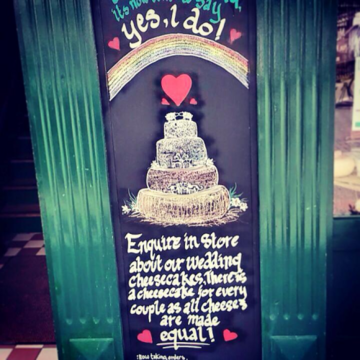 it's now time to say
yes, I do!
Enquire in store
about our wedding
cheesecakes, There is
a cheesecake for every
couple as all cheeses
are made
equal!
Now taking orders